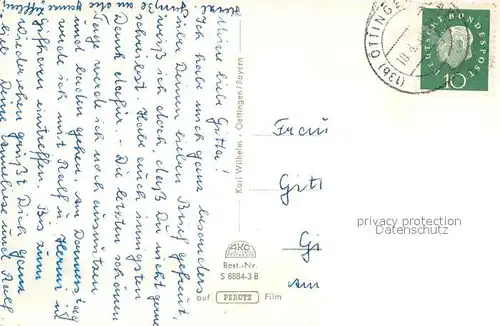 Meine liebe Gitta!
Ich habe mich ganz besonders
über Deinen lieben Brief gefreut,
weiß ich doch daß Du nicht gerne
schreibst. Habe auch innigsten
Dank dafür. - Die letzten schönen
Tage werde ich noch ausnützen
und baden gehen. Am Donnerstag
werde ich mit Ralf u. Herrn in
Gifhorn eintreffen. Bis zum
Wiedersehen grüßt Dich ganz
Deine Anneliese und Ralf.
Grüße an
Karl Wilhelm · Oettingen/Bayern
AKO
Best.-Nr.
S 8884-3 B
auf PERUTZ Film
Frau
Gitt
Gi
Am
(13b) OTTINGE
10.8.
DEUTSCHE BUNDESPOST
10
privacy protection
Datenschutz